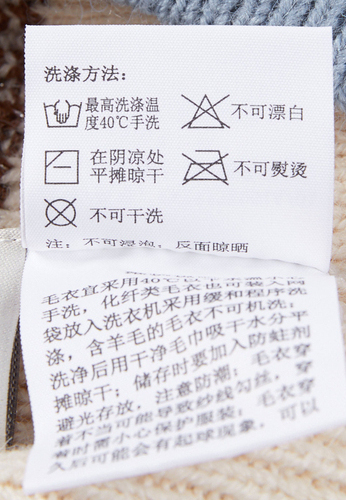 洗涤方法：
最高洗涤温
度40℃手洗
不可漂白
在阴凉处
平摊晾干
不可熨烫
不可干洗
注：不可浸泡；反面晾晒
毛衣宜采用40℃以下
手洗，化纤类毛衣也可装入网
袋放入洗衣机采用缓和程序洗
涤，含羊毛的毛衣不可机洗；
洗净后用干净毛巾吸干水分平
摊晾干；储存时要加入防蛀剂
避光存放，注意防潮；毛衣穿
着不当可能导致纱线勾丝，穿
着时需小心保护服装；毛衣穿
久后可能会有起球现象，可以